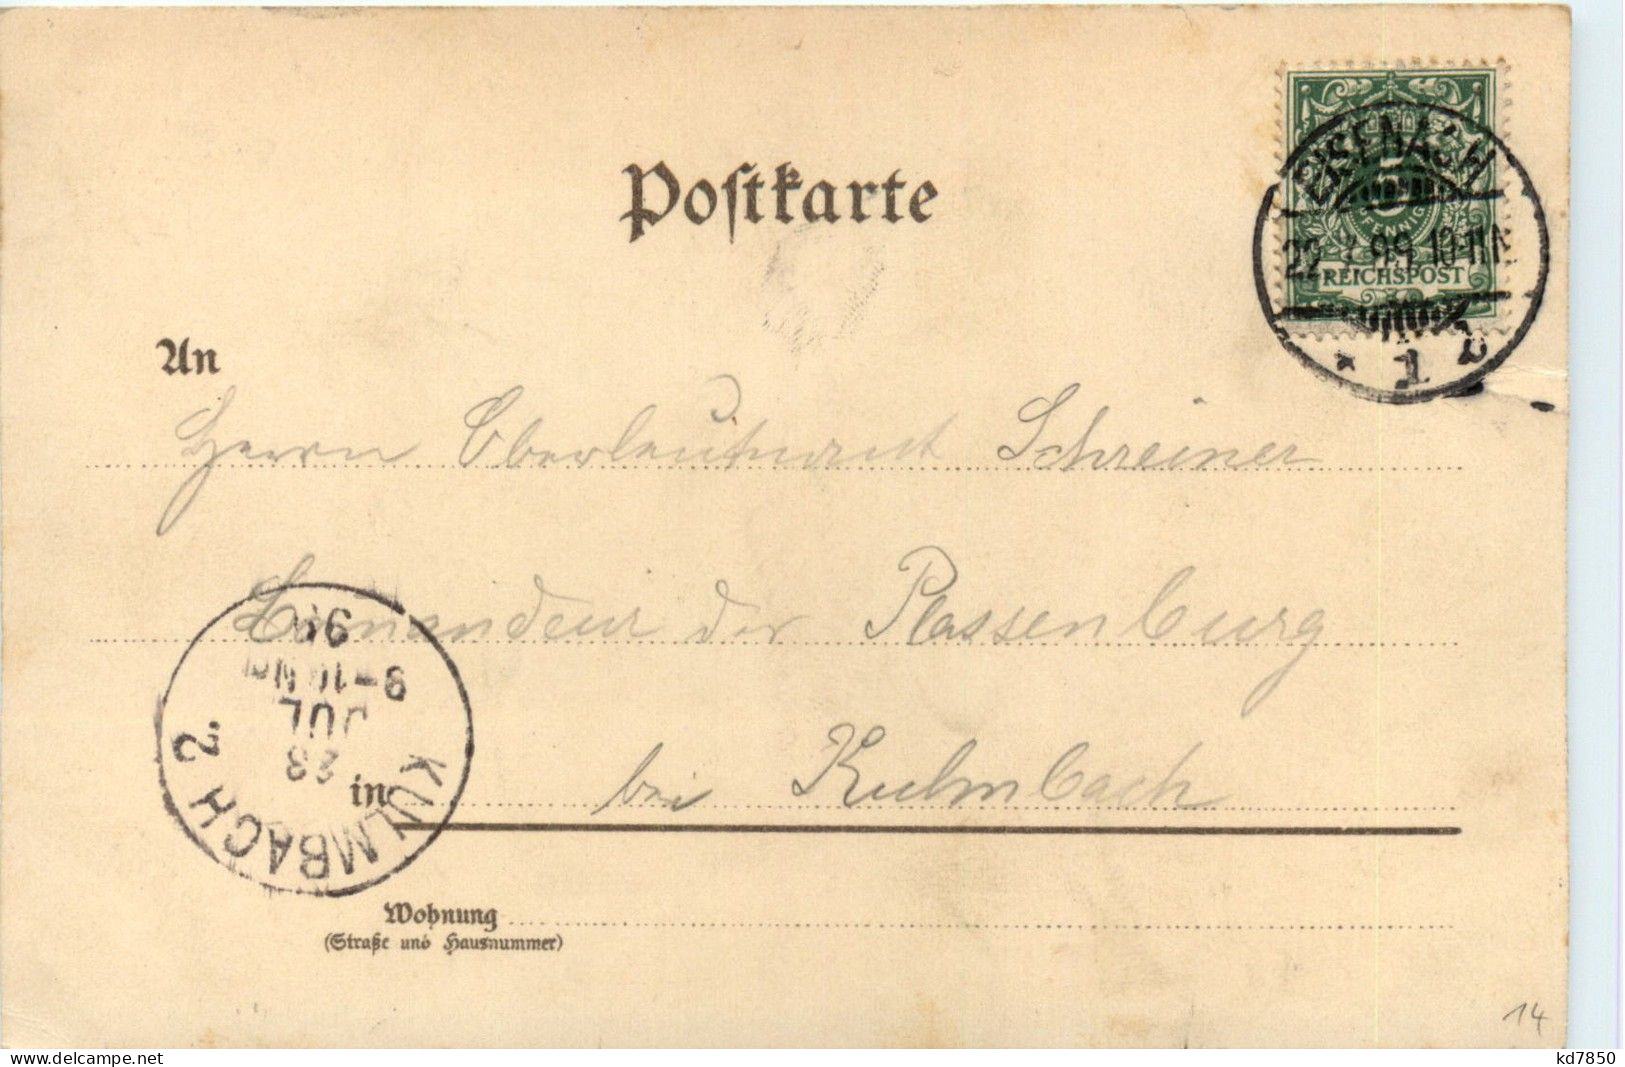 Postkarte
EISENACH
22.7.99.10-11N.
* 1 b
5
PFENNIG
REICHSPOST
An
Herrn Oberleutnant Schreiner
Comandeur der Plassenburg
in bei Kulmbach
KULMBACH 2
23
JUL
9-10 Nm
99
Wohnung
(Straße und Hausnummer)
14
kd7850